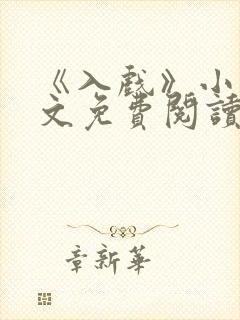 《入戲》小
文免費閱讀
章新華